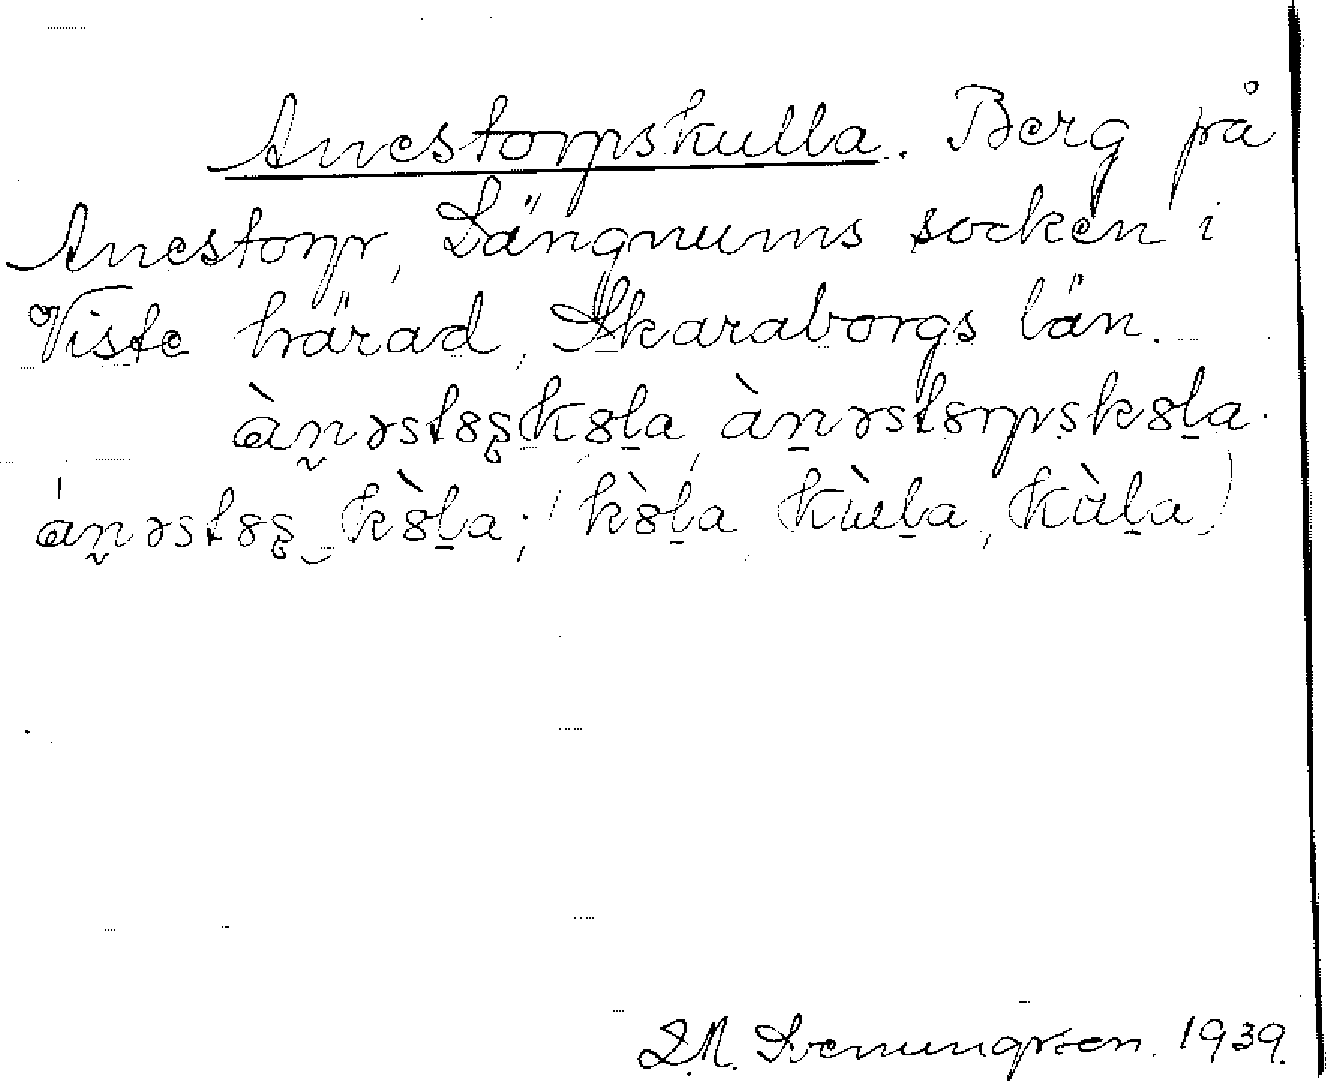 Anestorpskulla. Berg på
Anestorp, Längnums socken i
Viste härad, Skaraborgs län.
àn̰əstȣʂkȣl̠a, àn̠əstȣrpskȣl̠a.
án̰əstȣʂ‿kȣ̀l̠a; (kȣ̀l̠a, kùl̠a, kùl̠a)
1939.